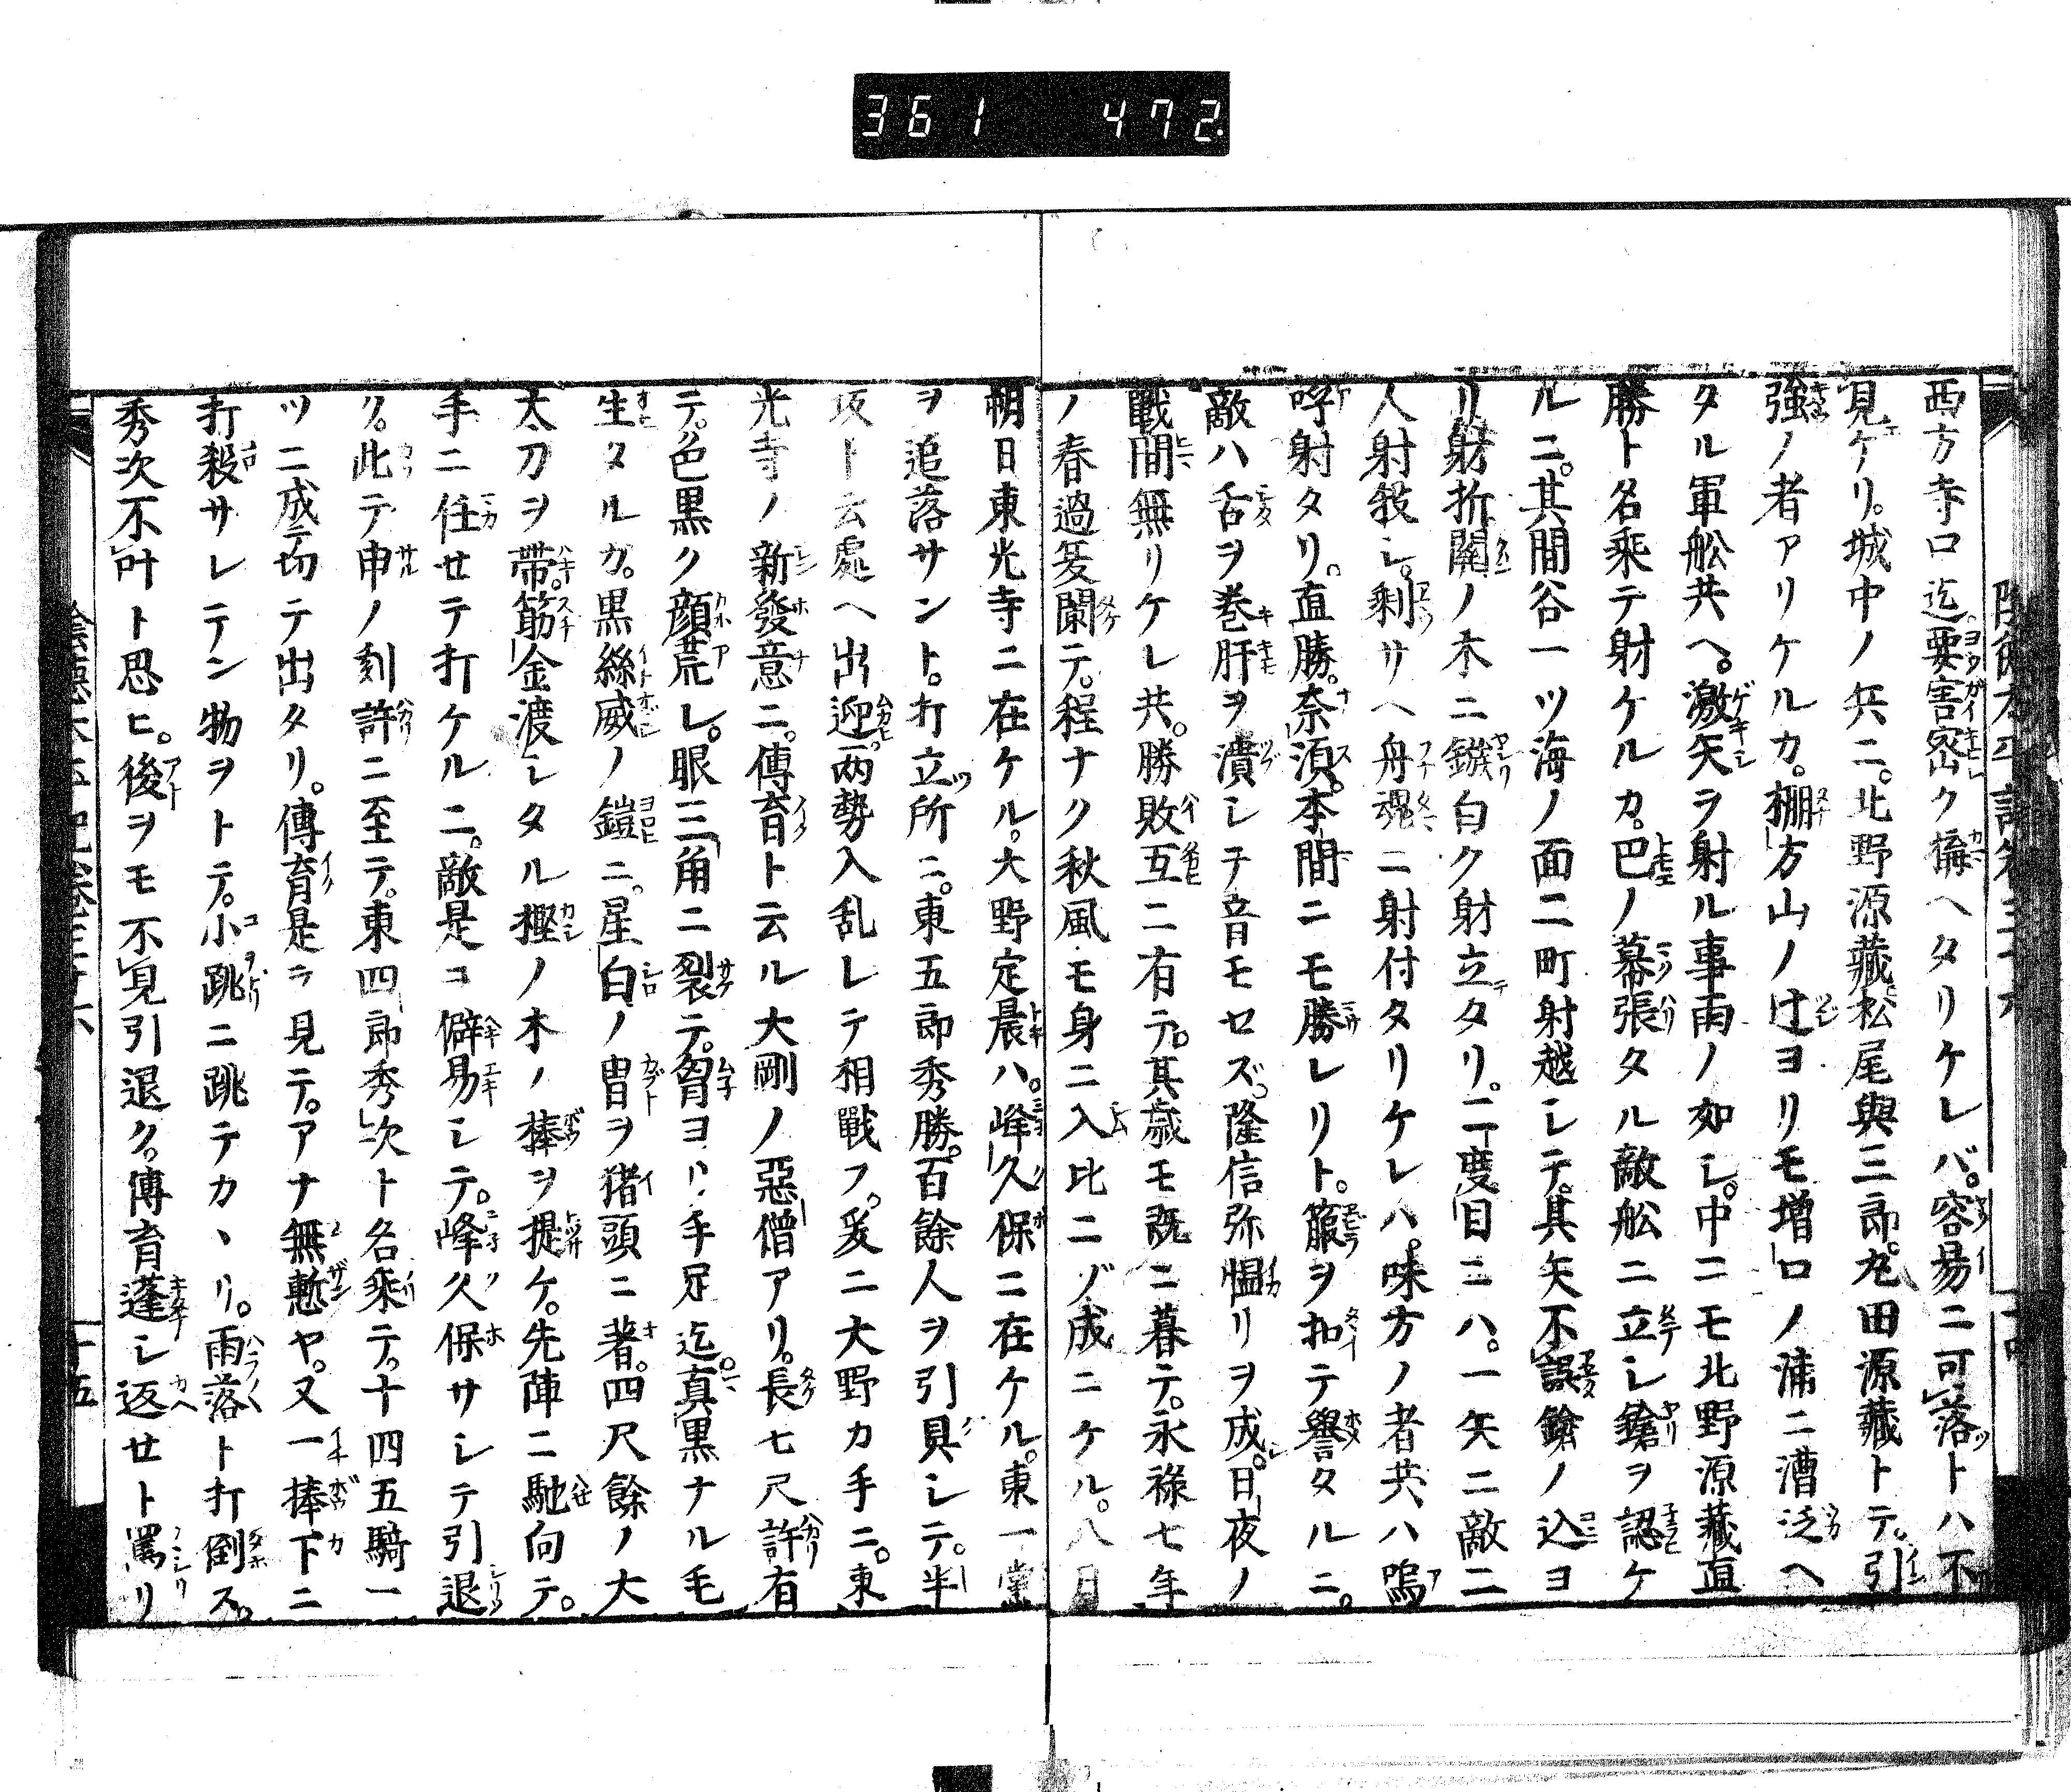 361 472
西方寺口迄要害密ク構ヘタリケレバ。容易ニ可落トハ不
見ケリ。城中ノ兵ニ。北野源藏松尾與三郎。丸田源藏トテ。引
強ノ者アリケルカ。棚方山ノ辻ヨリモ増ロノ浦ニ漕泛ヘ
タル軍舩共ヘ。激矢ヲ射ル事雨ノ如シ。中ニモ北野源藏直
勝ト名乘テ射ケルカ。巴ノ幕張タル敵舩ニ立シ鎗ヲ認ケ
ルニ。其間谷一ツ海ノ面二町射越シテ。其矢不誤鎗ノ込ヨ
リ射折關ノ木ニ鏃白ク射立タリ。二度目ニハ。一矢ニ敵二
人射殺シ。剰サヘ舟魂ニ射付タリケレハ。味方ノ者共ハ嗚
呼射タリ。直勝。奈須。本間ニモ勝レリト。箙ヲ扣テ譽タルニ。
敵ハ舌ヲ巻肝ヲ潰シテ音モセズ。隆信弥愠リヲ成。日夜ノ
戰間無リケレ共。勝敗互ニ有テ。其歳モ既ニ暮テ。永禄七年
ノ春過夏闌テ。程ナク秋風モ身ニ入比ニゾ成ニケル。八月
朔日東光寺ニ在ケル。大野定晨ハ。峰久保ニ在ケル。東一黨
ヲ追落サント。打立所ニ。東五郎秀勝。百餘人ヲ引具シテ。半
坂ト云處ヘ出迎。両勢入乱レテ相戰フ。爰ニ大野カ手ニ。東
光寺ノ新發意ニ。傳育ト云ル大剛ノ惡僧アリ。長七尺許有
テ。色黒ク顔荒レ。眼三角ニ裂テ。胷ヨリ手足迄。真黒ナル毛
生タルカ。黒絲威ノ鎧ニ。星白ノ冑ヲ猪頭ニ著。四尺餘ノ大
太刀ヲ帯。筋金渡シタル樫ノ木ノ棒ヲ提ケ。先陣ニ馳向テ。
手ニ任セテ打ケルニ。敵是コ僻易シテ。峰久保サシテ引退
ク。此テ申ノ刻許ニ至テ。東四郎秀次ト名乘テ。十四五騎一
ツニ成テ切テ出タリ。傳育是ヲ見テ。アナ無慙ヤ。又一捧下ニ
打殺サレテン物ヲトテ。小跳ニ跳テカヽリ。雨落ト打倒ス。
秀次不叶ト思ヒ。後ヲモ不見引退ク。傳育蓬シ返セト罵リ